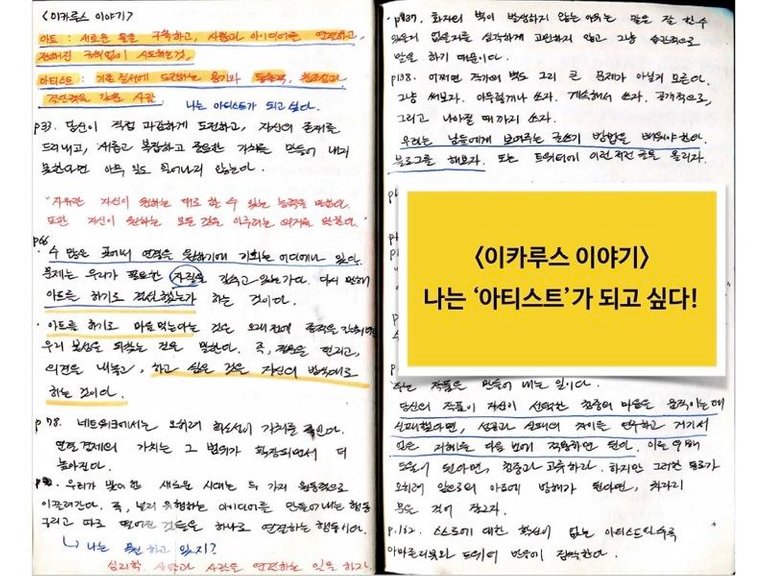 <이카루스 이야기>
아트 : 새로운 틀을 구축하고, 사람과 아이디어를 연결하고,
정해진 규칙없이 시도하는것.
아티스트 : 기존 질서에 도전하는 용기와 통찰력, 창조성과
결단력을 갖춘 사람
나는 아티스트가 되고 싶다.
p33. 당신이 직접 과감하게 도전하고, 자신의 존재를
드러내고, 새롭고 복잡하고 중요한 가치를 만들어 내지
못한다면 아무 일도 일어나지 않는다.
"자유란 자신이 원하는 대로 할 수 있는 능력을 말한다.
또한 자신이 원하는 모든 것을 이루려는 의지를 말한다."
p66
· 수 많은 곳에서 연결을 원하기에 기회는 어디에나 있다.
문제는 우리가 필요한 자질을 갖추고 있는가다. 다시 말해
아트를 하기로 결심했는가 하는 것이다.
· 아트를 하기로 마음먹는다는 것은 오래전에
우리 것을 말한다. 즉, 던지고,
의견을 내놓고, 하고 싶은 것을 자신의 방식대로
하는 것이다.
p78. 네트워크에서는 오히려 희소성이 가치를 죽인다.
연결경제의 가치는 그 범위가 확장되면서 더
높아진다.
우리가 맞이한 새로운 시대는 두 가지 원동력으로
이끌려간다. 즉, 널리 유행하는 아이디어를 만들어내는 행동
그리고 따로 떨어진 것들을 하나로 연결하는 행동이다.
↳ 나는 뭘 하고 있지?
심리학 사람과 사람을 연결하는 일을 하자
p137. 화자의 벽이 발생하지 않는 이유는 말을 잘 할 수
있을지 없을지를 심각하게 고민하지 않고 그냥 습관적으로
말을 하기 때문이다.
p138. 어쩌면 작가의 벽도 그리 큰 문제가 아닐지 모른다.
그냥 써보자. 아무렇게나 쓰자. 계속해서 쓰자. 공개적으로,
그리고 나아질 때까지 쓰자.
우리는 남들에게 보여주는 글쓰기 방법을 배워야 한다.
블로그를 해보자. 또는 트위터에 이런저런 글을 올리자.
<이카루스 이야기>
나는 '아티스트'가 되고 싶다!
작품을 만들어 내는 일이다.
당신의 작품이 자신이 선택한 청중의 마음을 움직이는데
실패했다면, 성공과 실패의 차이를 연구하고 거기서
얻은 지혜를 다음 번에 적용하면 된다. 이로 인해
도움이 된다면, 청중과 교류하라. 하지만 그러한 교류가
오히려 앞으로의 아트에 방해가 된다면, 차라리
문을 걸어 잠그자.
p.162. 스스로에 대한 확신이 없는 아티스트일수록
아마존리뷰와 트위터 반응에 집착한다.